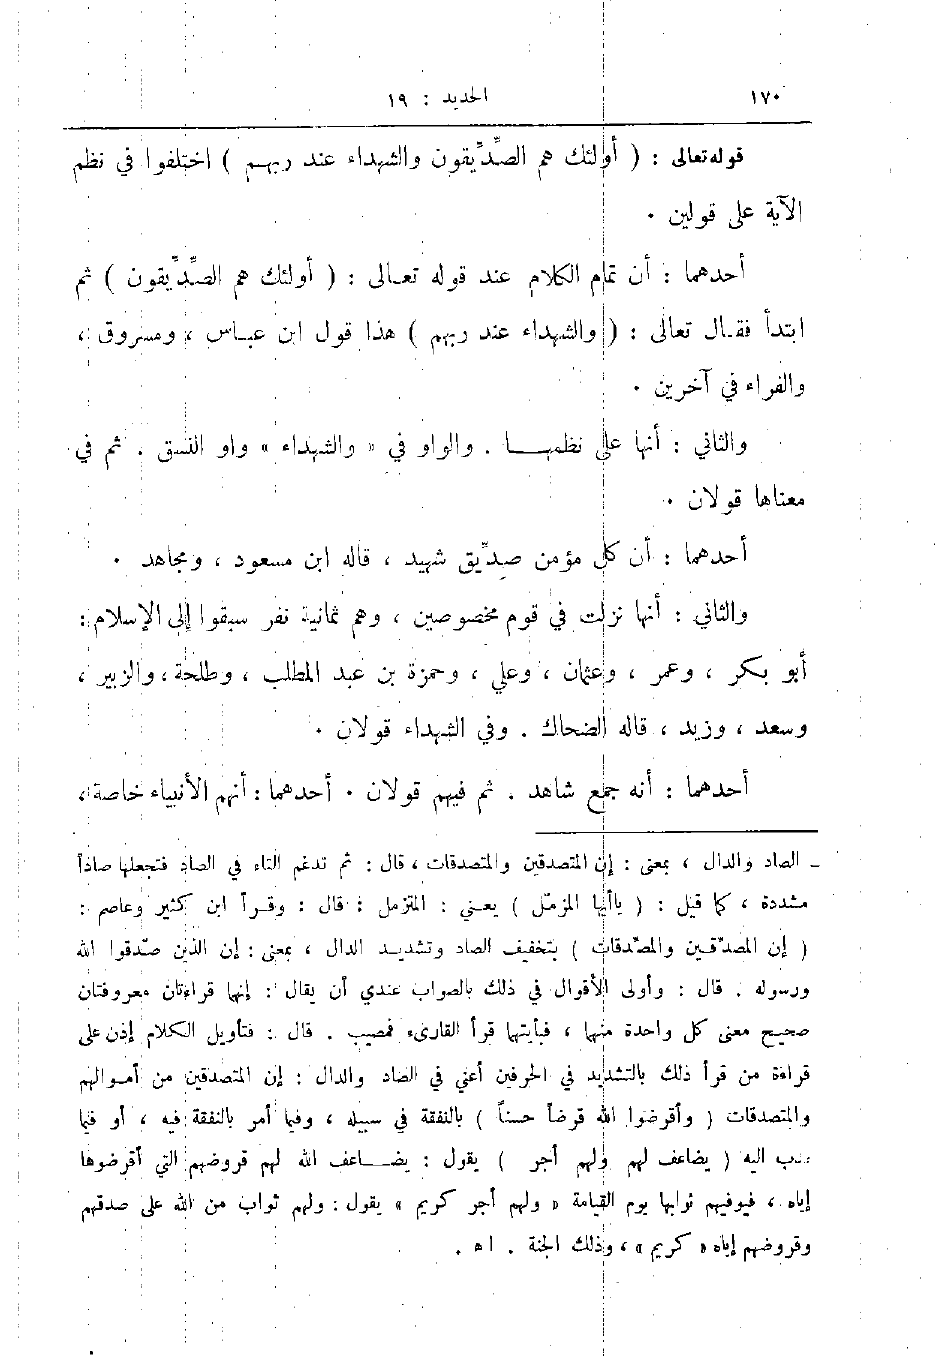 ١٧٠ الحديد : ١٩
قوله تعالى : ( أولئك هم الصِّدِّيقون والشهداء عند ربهم ) اختلفوا في نظم
الآية على قولين .
أحدهما : أن تمام الكلام عند قوله تعالى : ( أولئك هم الصِّدِّيقون ) ثم
ابتدأ فقال تعالى : ( والشهداء عند ربهم ) هذا قول ابن عباس ، ومسروق ،
والفراء في آخرين .
والثاني : أنها على نظمها . والواو في « والشهداء » واو النسق . ثم في
معناها قولان .
أحدهما : أن كل مؤمن صدِّيق شهيد ، قاله ابن مسعود ، ومجاهد .
والثاني : أنها نزلت في قوم مخصوصين ، وهم ثمانية نفر سبقوا إلى الإسلام :
أبو بكر ، وعمر ، وعثمان ، وعلي ، وحمزة بن عبد المطلب ، وطلحة ، والزبير ،
وسعد ، وزيد ، قاله الضحاك . وفي الشهداء قولان .
أحدهما : أنه جمع شاهد . ثم فيهم قولان . أحدهما : أنهم الأنبياء خاصة ،
ـ الصاد والدال ، بمعنى : إن المتصدقين والمتصدقات ، قال : ثم تدغم التاء في الصاد فتجعلها صاداً
مشددة ، كما قيل : ( ياأيها المزمّل ) يعني : المتزمل : قال : وقرأ ابن كثير وعاصم :
( إن المصدّقين والمصّدقات ) بتخفيف الصاد وتشديد الدال ، بمعنى : إن الذين صدّقوا الله
ورسوله . قال : وأولى الأقوال في ذلك بالصواب عندي أن يقال : إنها قراءتان معروفتان
صحيح معنى كل واحدة منها ، فبأيتها قرأ القارىء فمصيب . قال : فتأويل الكلام إذن على
قراءة من قرأ ذلك بالتشديد في الحرفين أعني في الصاد والدال : إن المتصدقين من أموالهم
والمتصدقات ( وأقرضوا الله قرضاً حسناً ) بالنفقة في سبيله ، وفيما أمر بالنفقة فيه ، أو فيما
ندب اليه ( يضاعف لهم ولهم أجر ) يقول : يضاعف الله لهم قروضهم التي أقرضوها
إياه ، فيوفيهم ثوابها يوم القيامة « ولهم أجر كريم » يقول : ولهم ثواب من الله على صدقهم
وقروضهم إياه « كريم » ، وذلك الجنة . اه .